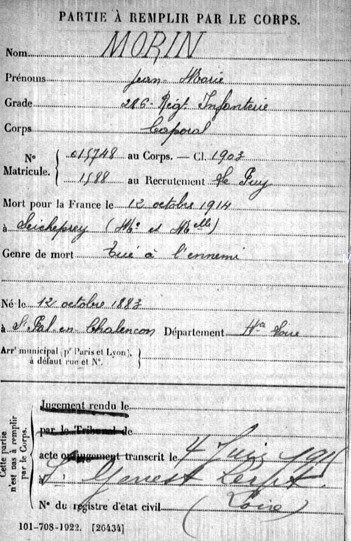 PARTIE À REMPLIR PAR LE CORPS.
Nom MORIN
Prénoms Jean Marie
Grade 286e Régt Infanterie
Corps Caporal
N° 015748 au Corps. — Cl. 1903
Matricule. 1588 au Recrutement Le Puy
Mort pour la France le 12 octobre 1914
à Seicheprey (Mthe et Mlle)
Genre de mort Tué à l'ennemi
Né le 12 octobre 1883
à St Pal en Chalencon Département Hte Loire
Arrt municipal (pr Paris et Lyon), à défaut rue et N°.
Cette partie n'est pas à remplir par le Corps.
Jugement rendu le
par le Tribunal de
acte ou jugement transcrit le 4 Juin 1915
St Genest Lerpt
N° du registre d'état civil (Loire)
101-708-1922. [26434]